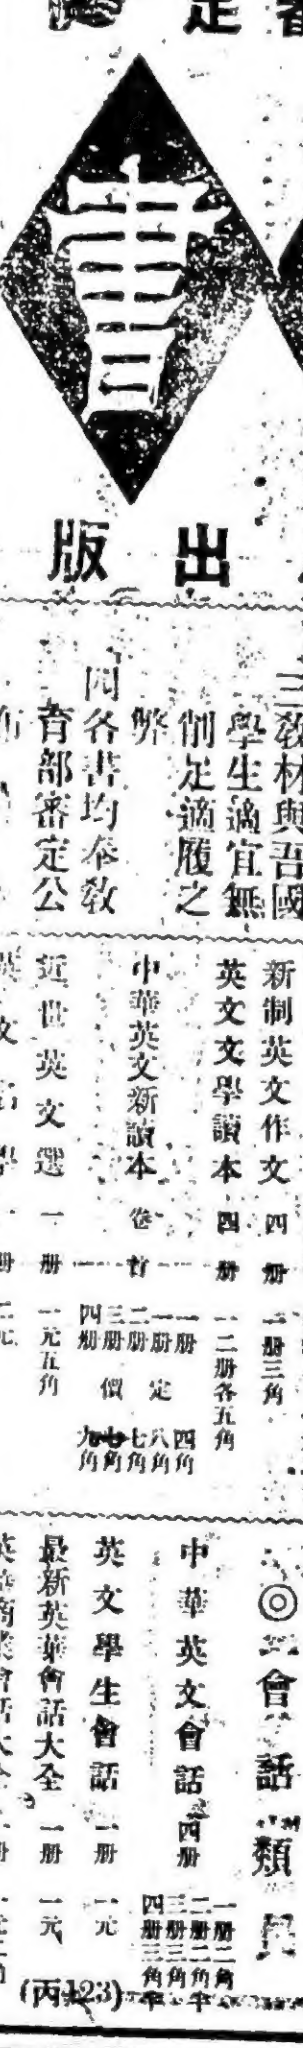 審定
書
出版
三教材與吾國
學生適宜無
削足適履之
弊
四各書均奉教
育部審定公
布
新制英文作文 四册 一册三角
英文文學讀本 四册 一二册各五角
中華英文新讀本 卷首 一册 四角 一册 定 八角 二册 七角 三册 價 角 四册 九角
近世英文選 一册 一元五角
◎會話類
中華英文會話 四册 一册二角 二册二角半 三册三角 四册三角半
英文學生會話 一册 一元
最新英華會話大全 一册 一元
(丙123)